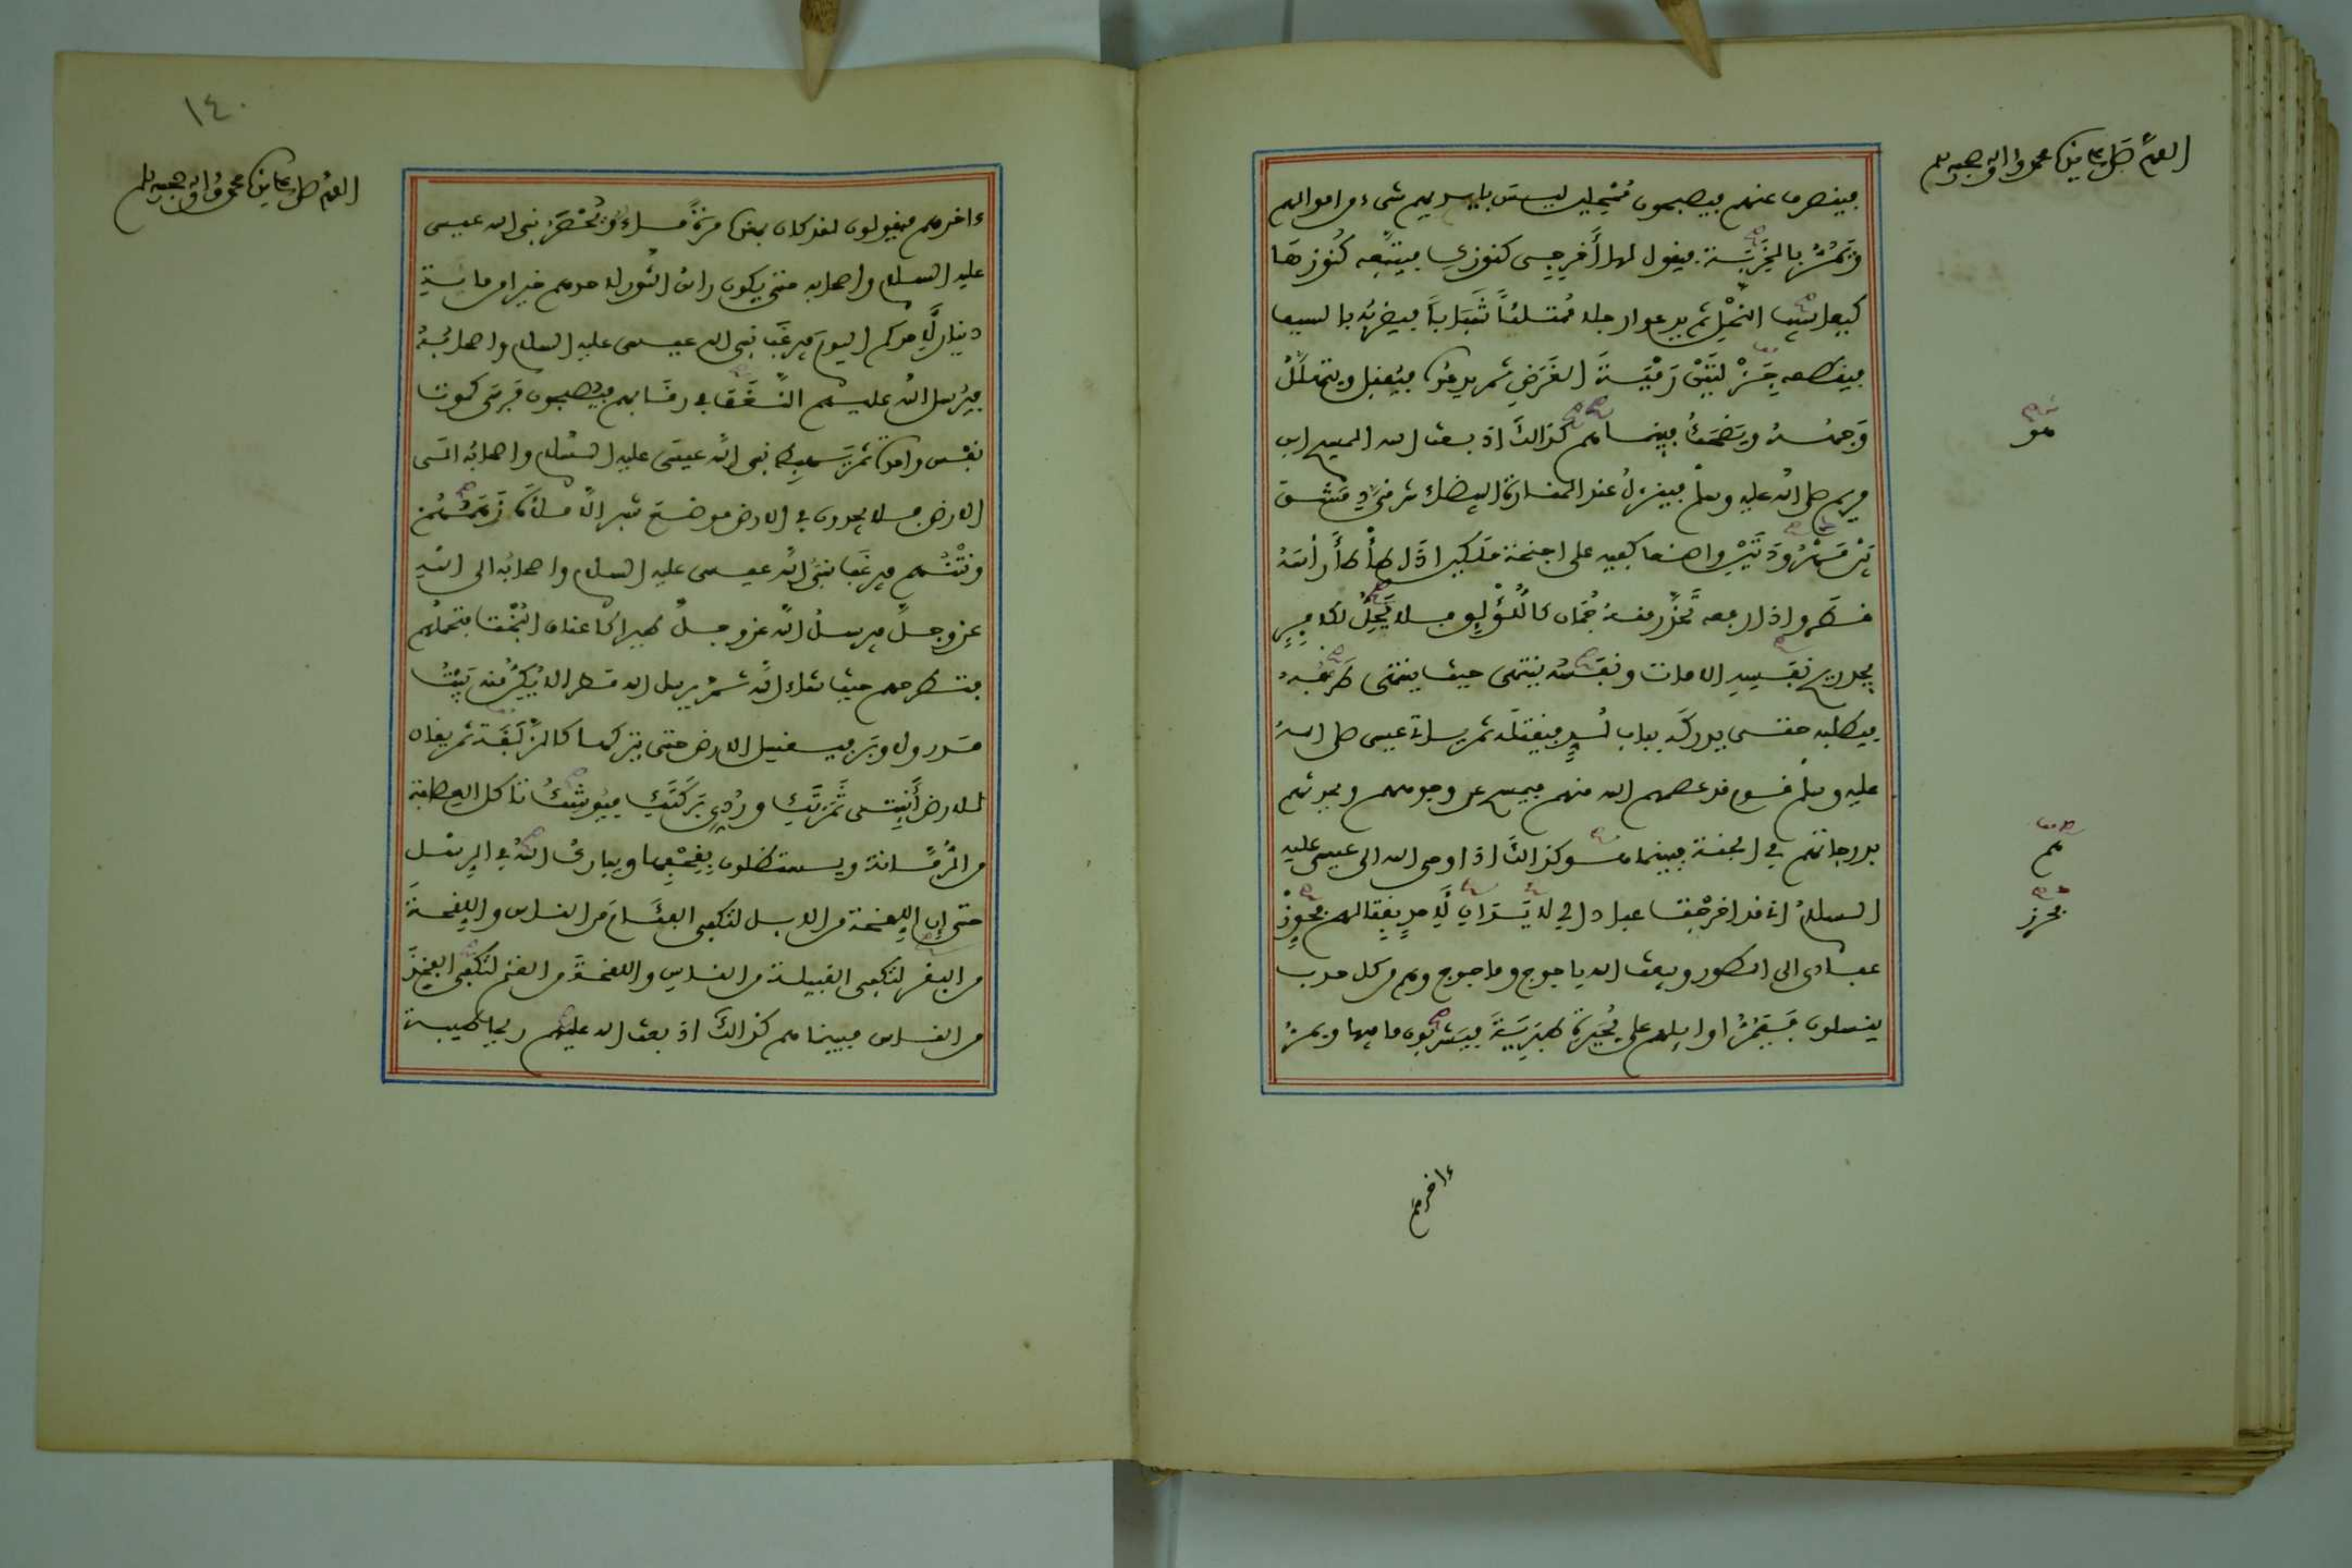 اللهم صل على سيدنا محمد وءاله وصحبه وسلم
فينصرف عنهم فيصبحون مُمْحِلين ليسَ بايديهم شىء من اموالهم
وَيَمُرُّ بالخَرِبَةِ فيقول لها أَخرِجِى كنوزكِ فيتبَعه كُنُوزهَا
كيعاسِيب النحْلِ ثم يدعوا رجلا مُمْتَلئًا شَبَابًا فيضربُه بالسيف
فيقطعه جِزْلتَيْنِ رَمْيَةَ الغَرَضِ ثم يدعُوهُ فيُقبل ويتهلَّلُ
وَجهُهُ ويَضحَكُ فبينما هم كذالكَ اذ بعث الله المسيح ابن
مريم صلى الله عليه وسلم فينزلُ عند المنارة البيضاء شرقىَّ دِمَشْق
بَيْنَ مَهْرُودَتَيْنِ واضعا كفيه على اجنحة ملكين اذا طأْطأَ رَأْسَهُ
قطر واذا رفعه تَحَدَّرَ منهُ جُمَان كاللُّؤْلُؤِ فلا يَحِلُّ لكافِرٍ
يجد ريح نفسِه الا مات ونفَسُه ينتهى حيث ينتهى طَرْفُهُ
فيطلبه حتى يدركَه بباب لُدٍّ فيقتلَه ثم ياتى عيسى صلى اللهُ
عليه وسلم قوم قد عصمهم الله منهم فيمسح عن وجوههم ويحدثهم
بدرجاتهم فى الجنة فبينما هو كذالكَ اذ اوحى الله الى عيسى عليه
السلامُ انى قد اخرجْت عبادا لى لا يَدَانِ لِأَحدٍ بِقتالهم فحَرِّزْ
عبادى الى الطور ويبعث الله ياجوج وماجوج وهم من كل حدب
ينسلون فَيَمُرُّ اوايلهم على بُحَيرةِ طَبَرِيَّةَ فيَشربُون ما فيها ويمرُّ
هو
هم
فحرز
ءاخرهم
١٤٠
اللهم صل على سيدنا محمد وءاله وصحبه وسلم
ءاخرهم فيقولون لقد كان بهذه مرةً ماء وَيُحْصَرُ نبى الله عيسى
عليه السلام واصحابه حتى يكون راسُ الثور لاحدهم خيرا من ماىةِ
دينار لِأَحدكم اليومَ فيرغَبُ نبى الله عيسى عليه السلام واصحابُهُ
فيُرسل اللهُ عليهم النَّغَفَ فى رقَابهم فيُصبحون فَرسَى كموت
نفْس واحدة ثم يَهبِط نبى الله عيسَى عليه السَّلام واصحابُه الَى
الارض فلا يجدون فى الارض موضعَ شبر الا ملأَهُ زَهَمُهُمْ
ونَتْنُهم فيرغَبُ نبىُّ الله عيسى عليه السلام واصحابُه الى الله
عزوجلَّ فيرسلُ اللهُ عزوجلَّ طيرا كاعناق البُخْت فتحملُهم
فتطرحهم حيثُ شاء اللهُ ثمَّ يرسل الله مطرا لا يُكِنُّ منه بَيْتُ
مَدر ولا وبَر فيغسل الارض حتى يتركها كالزَّلَفَة ثم يقال
للارض أَنبِتِى ثَمَرَتَكِ ورُدِّى بَرَكَتَكِ فيُومئِذ تأكل العِصَابة
من الرُّمَّانة ويستظلون بِقِحْفِها ويباركُ اللهُ فى الرِّسْل
حتى إن اللِّقحة من الابل لتكفى الفئَامَ من الناس واللِّقحةَ
من البقر لتكفى القبيلة من الناس واللقحةَ من الغنم لتكفى الفخِذَ
من الناس فبينما هم كذالكَ اذ بعث الله عليهم ريحا طيبة